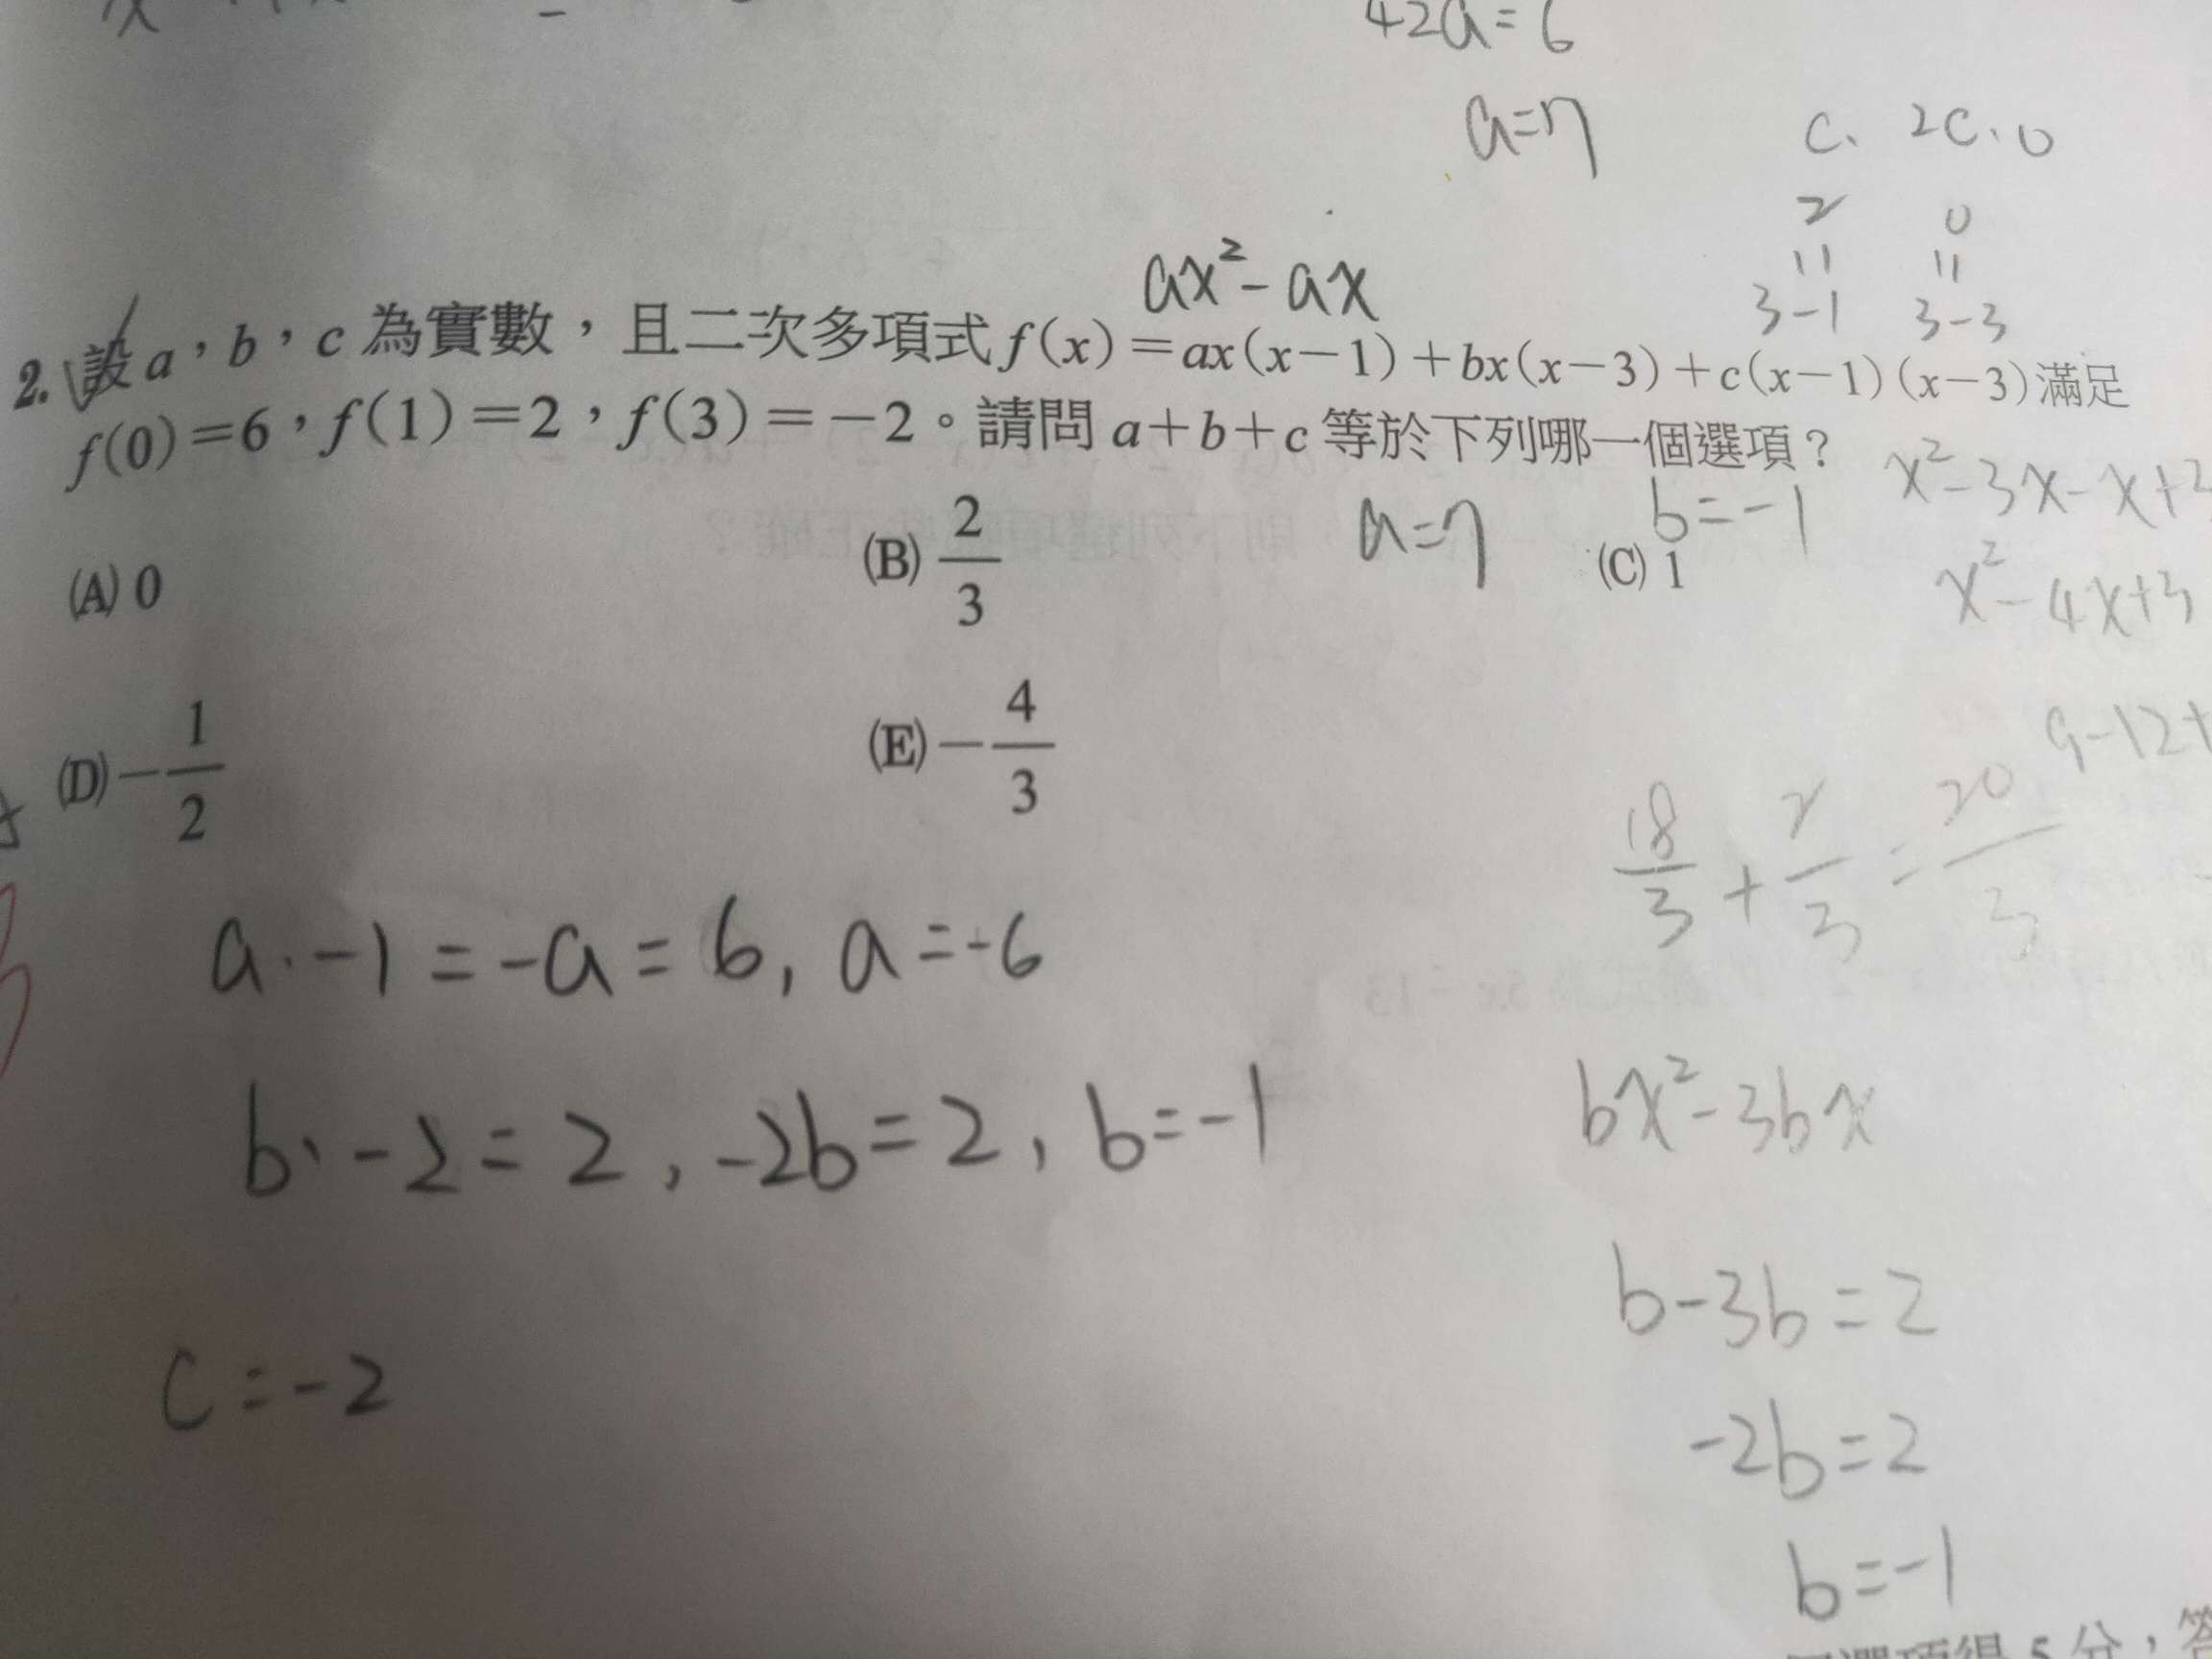 42a=6
a=7
c、 2c、0
2 0
11 11
3-1 3-3
ax²-ax
2. 設a，b，c 為實數，且二次多項式 f(x)=ax(x-1)+bx(x-3)+c(x-1)(x-3)滿足
f(0)=6，f(1)=2，f(3)=-2。請問 a+b+c 等於下列哪一個選項？
x²-3x-x+3
a=7 b=-1
(A) 0 (B) 2/3 (C) 1
x²-4x+3
9-12+
(D) -1/2 (E) -4/3
18/3 + 2/3 = 20/3
a·-1=-a=6, a=-6
b·-2=2, -2b=2, b=-1
bx²-3bx
b-3b=2
c=-2
-2b=2
b=-1
選項得 5 分，答